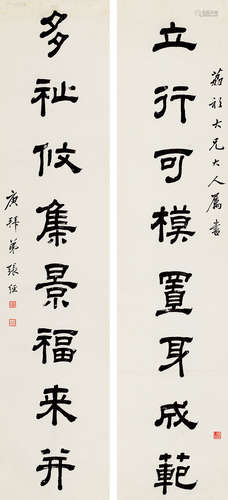 荔衫大兄大人属書
立行可模置身成範
多祉攸集景福来并
庚拜弟張任